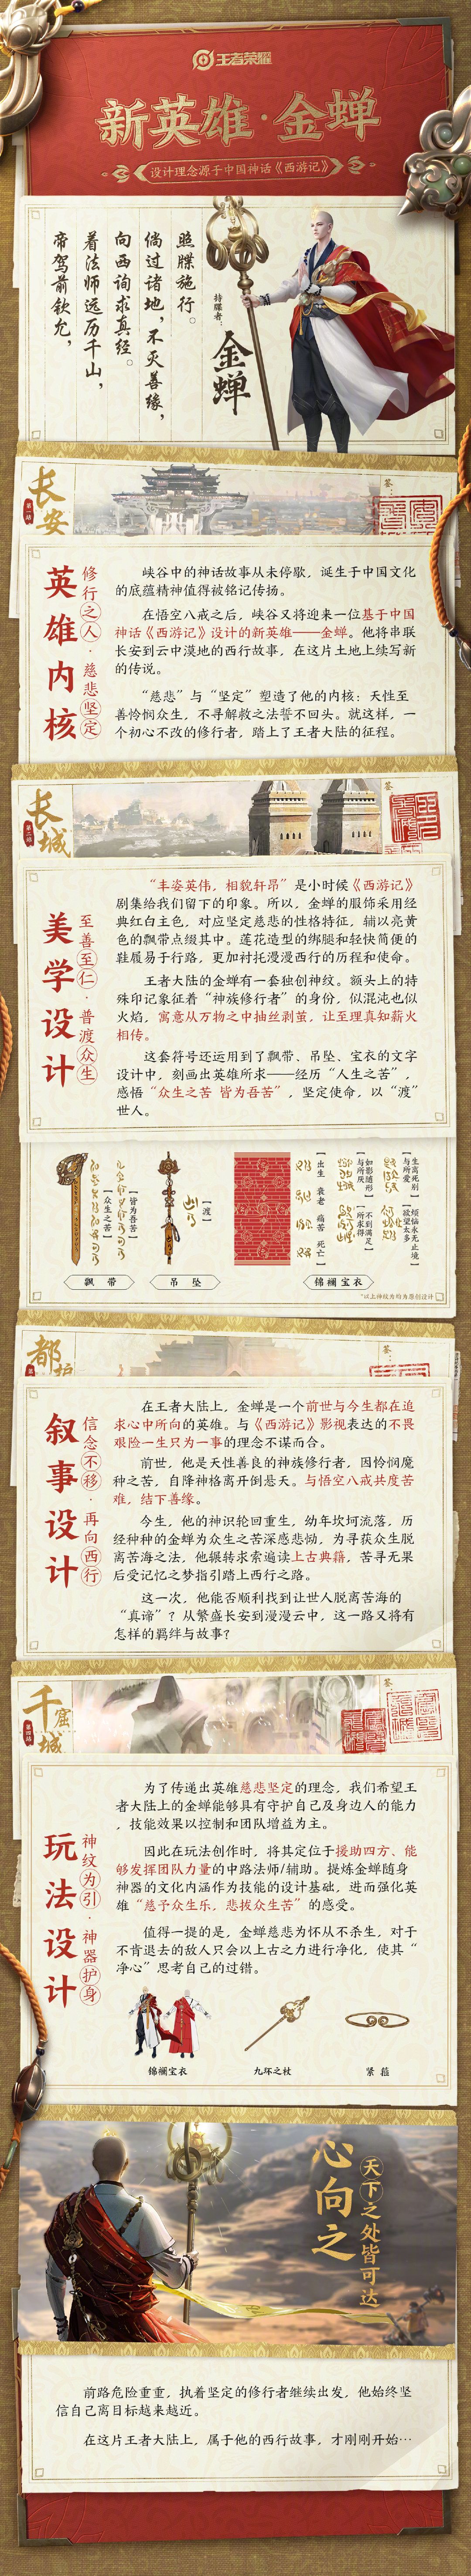 王者荣耀
新英雄·金蝉
设计理念源于中国神话《西游记》
帝驾前钦允,
着法师远历千山,
向西询求真经。
倘过诸地,不灭善缘,
照牒施行。
持牒者:
金蝉
长安
第一站
签:
英雄内核
修行之人·慈悲坚定
峡谷中的神话故事从未停歇,诞生于中国文化
的底蕴精神值得被铭记传扬。
在悟空八戒之后,峡谷又将迎来一位基于中国
神话《西游记》设计的新英雄——金蝉。他将串联
长安到云中漠地的西行故事,在这片土地上续写新
的传说。
“慈悲”与“坚定”塑造了他的内核:天性至
善怜悯众生,不寻解救之法誓不回头。就这样,一
个初心不改的修行者,踏上了王者大陆的征程。
长城
第二站
签:
美学设计
至善至仁·普渡众生
“丰姿英伟,相貌轩昂”是小时候《西游记》
剧集给我们留下的印象。所以,金蝉的服饰采用经
典红白主色,对应坚定慈悲的性格特征,辅以亮黄
色的飘带点缀其中。莲花造型的绑腿和轻快简便的
鞋履易于行路,更加衬托漫漫西行的历程和使命。
王者大陆的金蝉有一套独创神纹。额头上的特
殊印记象征着“神族修行者”的身份,似混沌也似
火焰,寓意从万物之中抽丝剥茧,让至理真知薪火
相传。
这套符号还运用到了飘带、吊坠、宝衣的文字
设计中,刻画出英雄所求——经历“人生之苦”,
感悟“众生之苦 皆为吾苦”,坚定使命,以“渡”
世人。
【众生之苦】
【皆为吾苦】
【渡】
出生 衰老 痛苦 死亡
【如影随形 与所厌】
【不到满足 所求得】
【生离死别 与所爱】
【烦恼永无止境 欲望太多】
飘带
吊坠
锦襕宝衣
*以上神纹为均为原创设计
都护
签:
叙事设计
信念不移·再向西行
在王者大陆上,金蝉是一个前世与今生都在追
求心中所向的英雄。与《西游记》影视表达的不畏
艰险一生只为一事的理念不谋而合。
前世,他是天性善良的神族修行者,因怜悯魔
种之苦,自降神格离开倒悬天。与悟空八戒共度苦
难,结下善缘。
今生,他的神识轮回重生,幼年坎坷流落,历
经种种的金蝉为众生之苦深感悲恸,为寻获众生脱
离苦海之法,他辗转求索遍读上古典籍,苦寻无果
后受记忆之梦指引踏上西行之路。
这一次,他能否顺利找到让世人脱离苦海的
“真谛”?从繁盛长安到漫漫云中,这一路又将有
怎样的羁绊与故事?
千窟城
第四站
签:
玩法设计
神纹为引·神器护身
为了传递出英雄慈悲坚定的理念,我们希望王
者大陆上的金蝉能够具有守护自己及身边人的能力
,技能效果以控制和团队增益为主。
因此在玩法创作时,将其定位于援助四方、能
够发挥团队力量的中路法师/辅助。提炼金蝉随身
神器的文化内涵作为技能的设计基础,进而强化英
雄“慈予众生乐,悲拔众生苦”的感受。
值得一提的是,金蝉慈悲为怀从不杀生,对于
不肯退去的敌人只会以上古之力进行净化,使其“
净心”思考自己的过错。
锦襕宝衣
九环之杖
紧箍
心向之
天下之处皆可达
前路危险重重,执着坚定的修行者继续出发,他始终坚
信自己离目标越来越近。
在这片王者大陆上,属于他的西行故事,才刚刚开始…